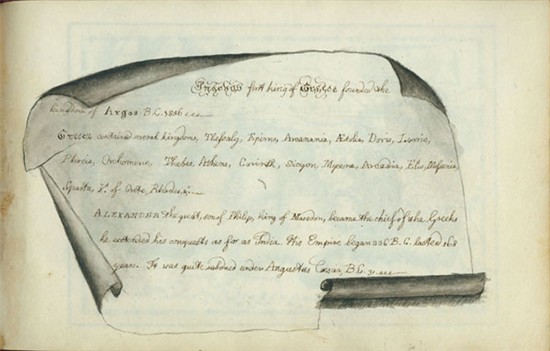 Inachus first king of Greece founded the
kingdom of Argos B.C. 1856
Greece contained several kingdoms, Thessaly, Epirus, Acarnania, Ætolia, Doris, Locris,
Phocis, Orchomene, Thebes Athens, Corinth, Sicyon, Mycena, Arcadia, Elis, Messenia,
Sparta, of Crete, Rhodes,
ALEXANDER the great, son of Philip, king of Macedon, became the chief of the Greeks
he extended his conquests as far as India. The Empire began 336 B.C. lasted
years. It was quite subdued under Augustus Cæsar, B.C. 31